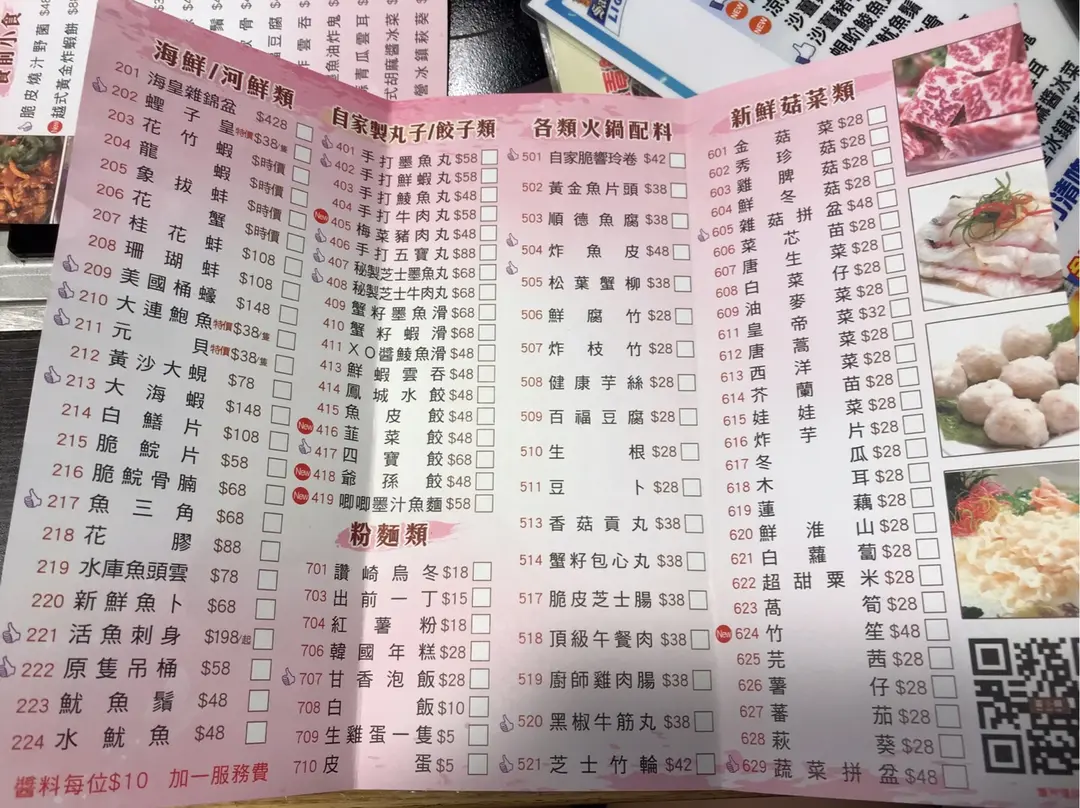 海鮮/河鮮類
201 海皇雜錦盆 $428
202 蟶子皇 特價$38/隻
203 花竹蝦 $時價
204 龍蝦 $時價
205 象拔蚌 $時價
206 花蟹 $時價
207 桂花蚌 $108
208 珊瑚蚌 $108
209 美國桶蠔 $148
210 大連鮑魚 特價$38/隻
211 元貝 特價$38/隻
212 黃沙大蜆 $78
213 大海蝦 $148
214 白鱔片 $108
215 脆鯇片 $58
216 脆鯇骨腩 $68
217 魚三角 $68
218 花膠 $88
219 水庫魚頭雲 $78
220 新鮮魚卜 $68
221 活魚刺身 $198/起
222 原隻吊桶 $58
223 魷魚鬚 $48
224 水魷魚 $48
醬料每位$10 加一服務費
自家製丸子/餃子類
401 手打墨魚丸 $58
402 手打鮮蝦丸 $58
403 手打鯪魚丸 $48
404 手打牛肉丸 $58
New 405 梅菜豬肉丸 $48
406 手打五寶丸 $88
407 秘製芝士墨魚丸 $68
408 秘製芝士牛肉丸 $68
409 蟹籽墨魚滑 $68
410 蟹籽蝦滑 $68
411 XO醬鯪魚滑 $48
413 鮮蝦雲吞 $48
414 鳳城水餃 $48
415 魚皮餃 $48
New 416 韮菜餃 $48
417 四寶餃 $68
New 418 爺孫餃 $48
New 419 唧唧墨汁魚麵 $58
粉麵類
701 讚崎烏冬 $18
703 出前一丁 $15
704 紅薯粉 $18
706 韓國年糕 $28
707 甘香泡飯 $28
708 白飯 $10
709 生雞蛋一隻 $5
710 皮蛋 $5
各類火鍋配料
501 自家脆響玲卷 $42
502 黃金魚片頭 $38
503 順德魚腐 $38
504 炸魚皮 $48
505 松葉蟹柳 $38
506 鮮腐竹 $28
507 炸枝竹 $28
508 健康芋絲 $28
509 百福豆腐 $28
510 生根 $28
511 豆卜 $28
513 香菇貢丸 $38
514 蟹籽包心丸 $38
517 脆皮芝士腸 $38
518 頂級午餐肉 $38
519 廚師雞肉腸 $38
520 黑椒牛筋丸 $38
521 芝士竹輪 $42
新鮮菇菜類
601 金菇菜 $28
602 秀珍菇 $28
603 雞脾菇 $28
604 鮮冬菇 $28
605 雜菇拼盆 $48
606 菜芯苗 $28
607 唐生菜 $28
608 白菜仔 $28
609 油麥菜 $28
611 皇帝菜 $32
612 唐蒿菜 $28
613 西洋菜 $28
614 芥蘭苗 $28
615 娃娃菜 $28
616 炸芋片 $28
617 冬瓜 $28
618 木耳 $28
619 蓮藕 $28
620 鮮淮山 $28
621 白蘿蔔 $28
622 超甜粟米 $28
623 萵筍 $28
New 624 竹笙 $48
625 芫茜 $28
626 薯仔 $28
627 蕃茄 $28
628 萩葵 $28
629 蔬菜拼盆 $48
脆皮燒汁野菌
New 越式黃金炸蝦餅